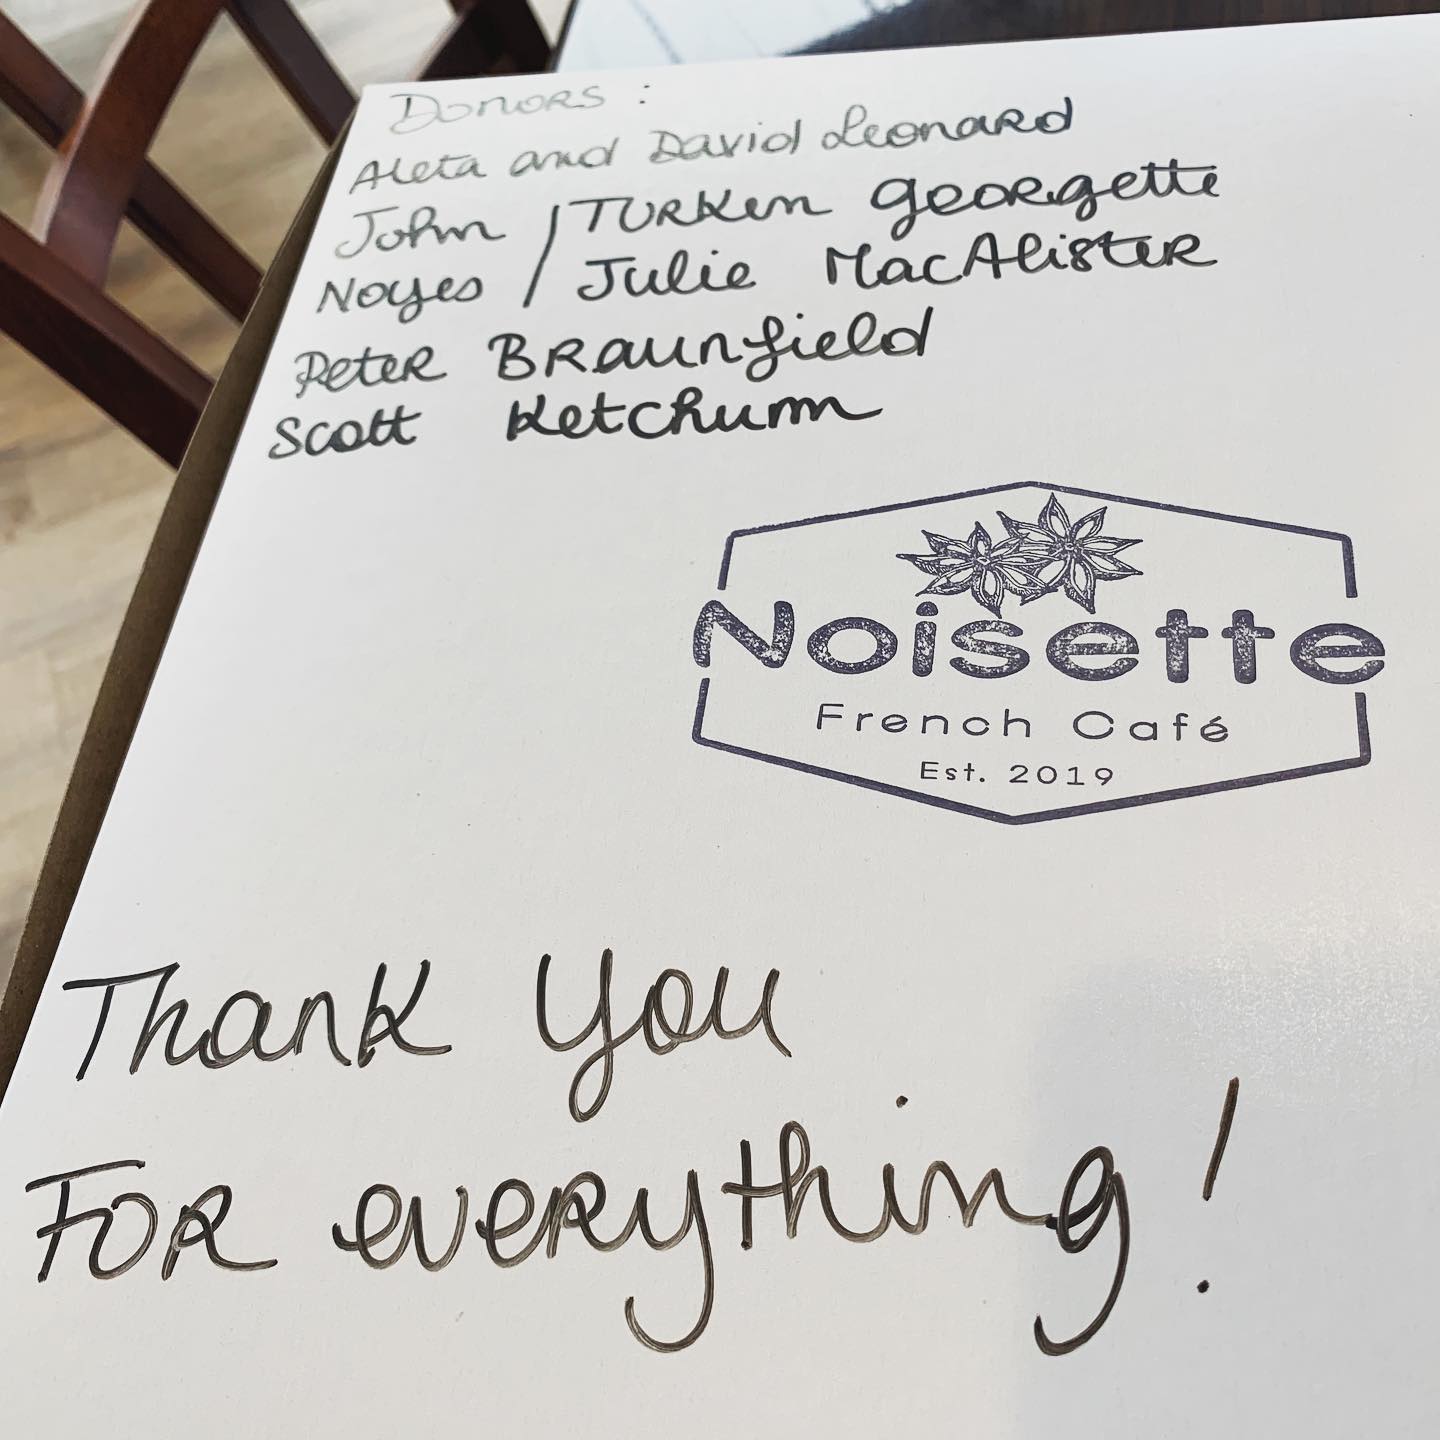 Donors :
Aleta and David Leonard
John / Turken Georgette
Noyes / Julie MacAlister
Peter Braunfield
Scott Ketchum
Noisette
French Café
Est. 2019
Thank you
For everything!